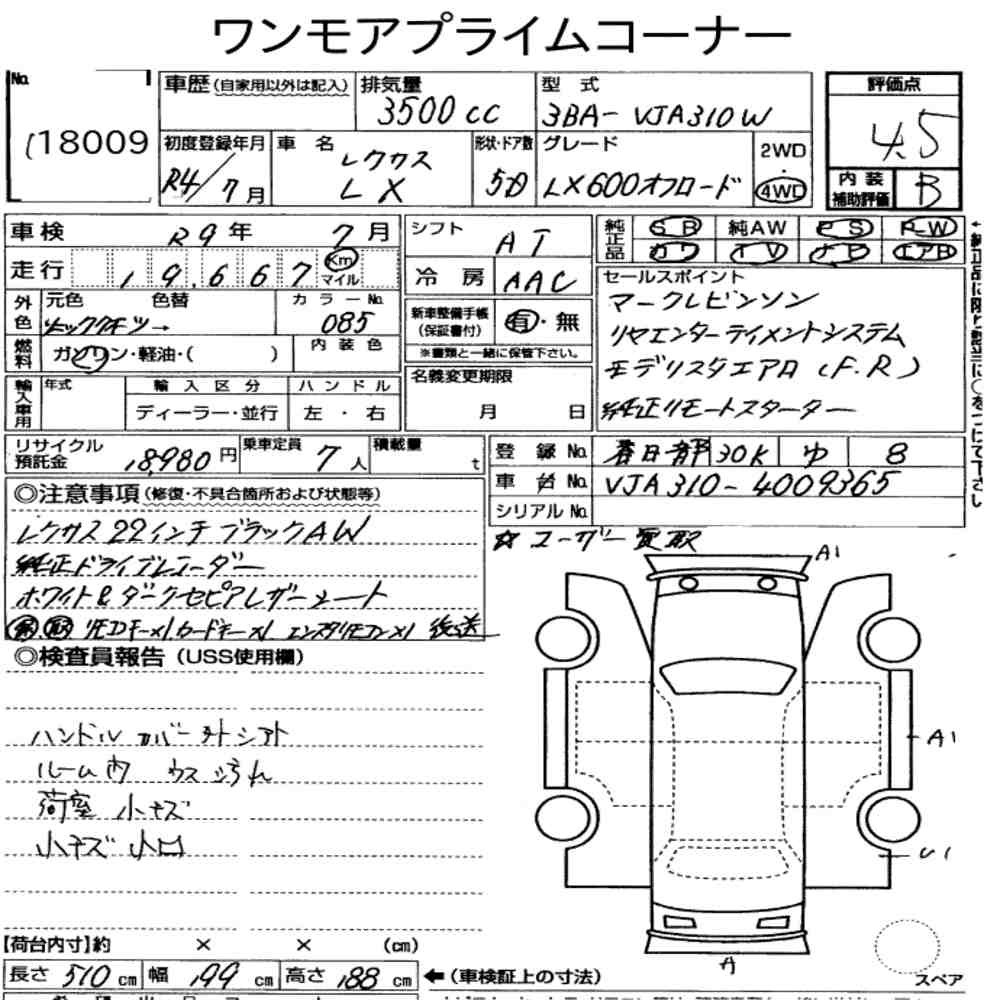 ワンモアプライムコーナー
No.
18009
車歴 (自家用以外は記入)
排気量
3500cc
型式
3BA-VJA310W
評価点
4.5
初度登録年月
R4/7月
車名
レクサス
LX
形状・ドア数
5D
グレード
LX600オフロード
2WD
4WD
内装
補助評価
B
車検
R9年 7月
走行
19,667
Km
マイル
外色
元色 色替
カラーNo.
085
燃料
ガソリン・軽油・( )
内装色
輸入車用
年式
輸入区分
ディーラー・並行
ハンドル
左・右
シフト
AT
冷房
AAC
新車整備手帳
(保証書付)
有・無
※書類と一緒に保管下さい。
名義変更期限
月 日
純正品
SB 純AW PS PW
カワ TV ナビ エアB
セールスポイント
マークレビンソン
リヤエンターテイメントシステム
モデリスタエアロ(F.R)
純正リモートスターター
リサイクル
預託金
18,980円
乗車定員
7人
積載量
t
登録No.
春日部 30K ゆ 8
車台No.
VJA310-4009365
シリアルNo.
◎注意事項(修復・不具合箇所および状態等)
レクサス22インチブラックAW
純正ドライブレコーダー
ホワイト&ダークセピアレザーシート
リモコンキー×1 カードキー×1 エンスタリモコン×1 後送
☆ユーザー買取
◎検査員報告(USS使用欄)
ハンドル カバー 外シアト
ルーム内 ウス汚れ
荷室 小キズ
小キズ 小凹
A1
A1
U1
A
スペア
【荷台内寸】約 × × (cm)
長さ 510 cm 幅 199 cm 高さ 188 cm
←(車検証上の寸法)